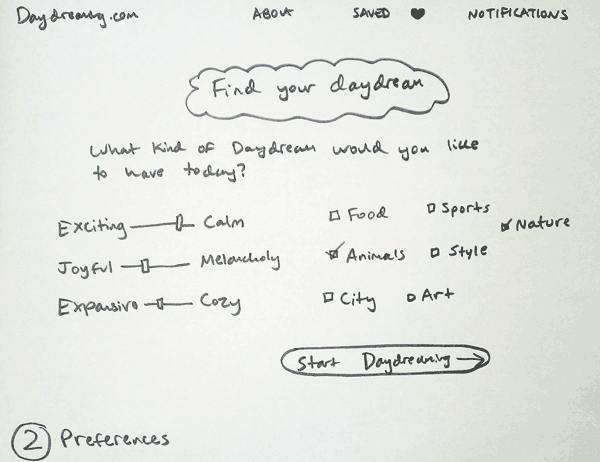 Daydreaming.com ABOUT SAVED ♥ NOTIFICATIONS
Find your daydream
What kind of Daydream would you like
to have today?
Exciting Calm
Joyful Melancholy
Expansive Cozy
Food Sports Nature
Animals Style
City Art
Start Daydreaming →
2 Preferences